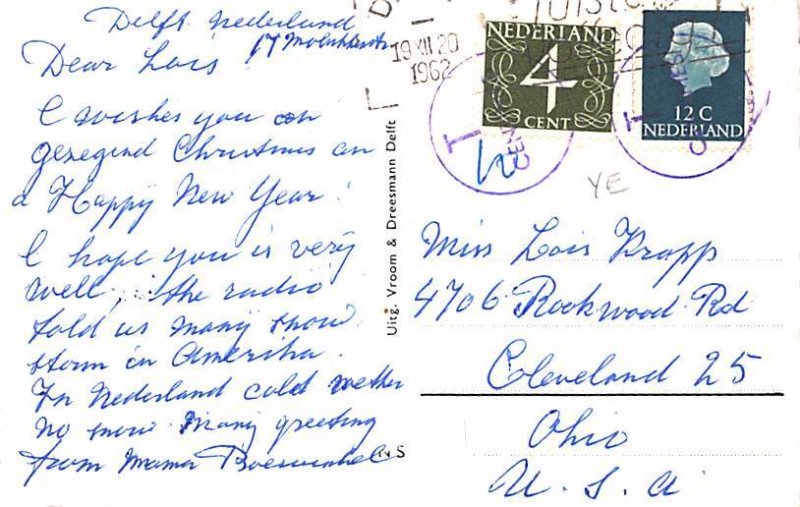 Delft. Nederland
17
Dear Lois
I wishes you an
gezegend Christmas an
a Happy New Year!
I hope you is very
well, the radio
told us many snow
storm in Amerika.
In Nederland cold wether
no snow. Many greeting
from Mama
Uitg. Vroom & Dreesmann Delft
19 XII 20
1962
NEDERLAND
4
CENT
12 C
NEDERLAND
T
CEN
T
YE
Miss Lois Kropp
4706 Rookwood Rd
Cleveland 25
Ohio
U. S. A.